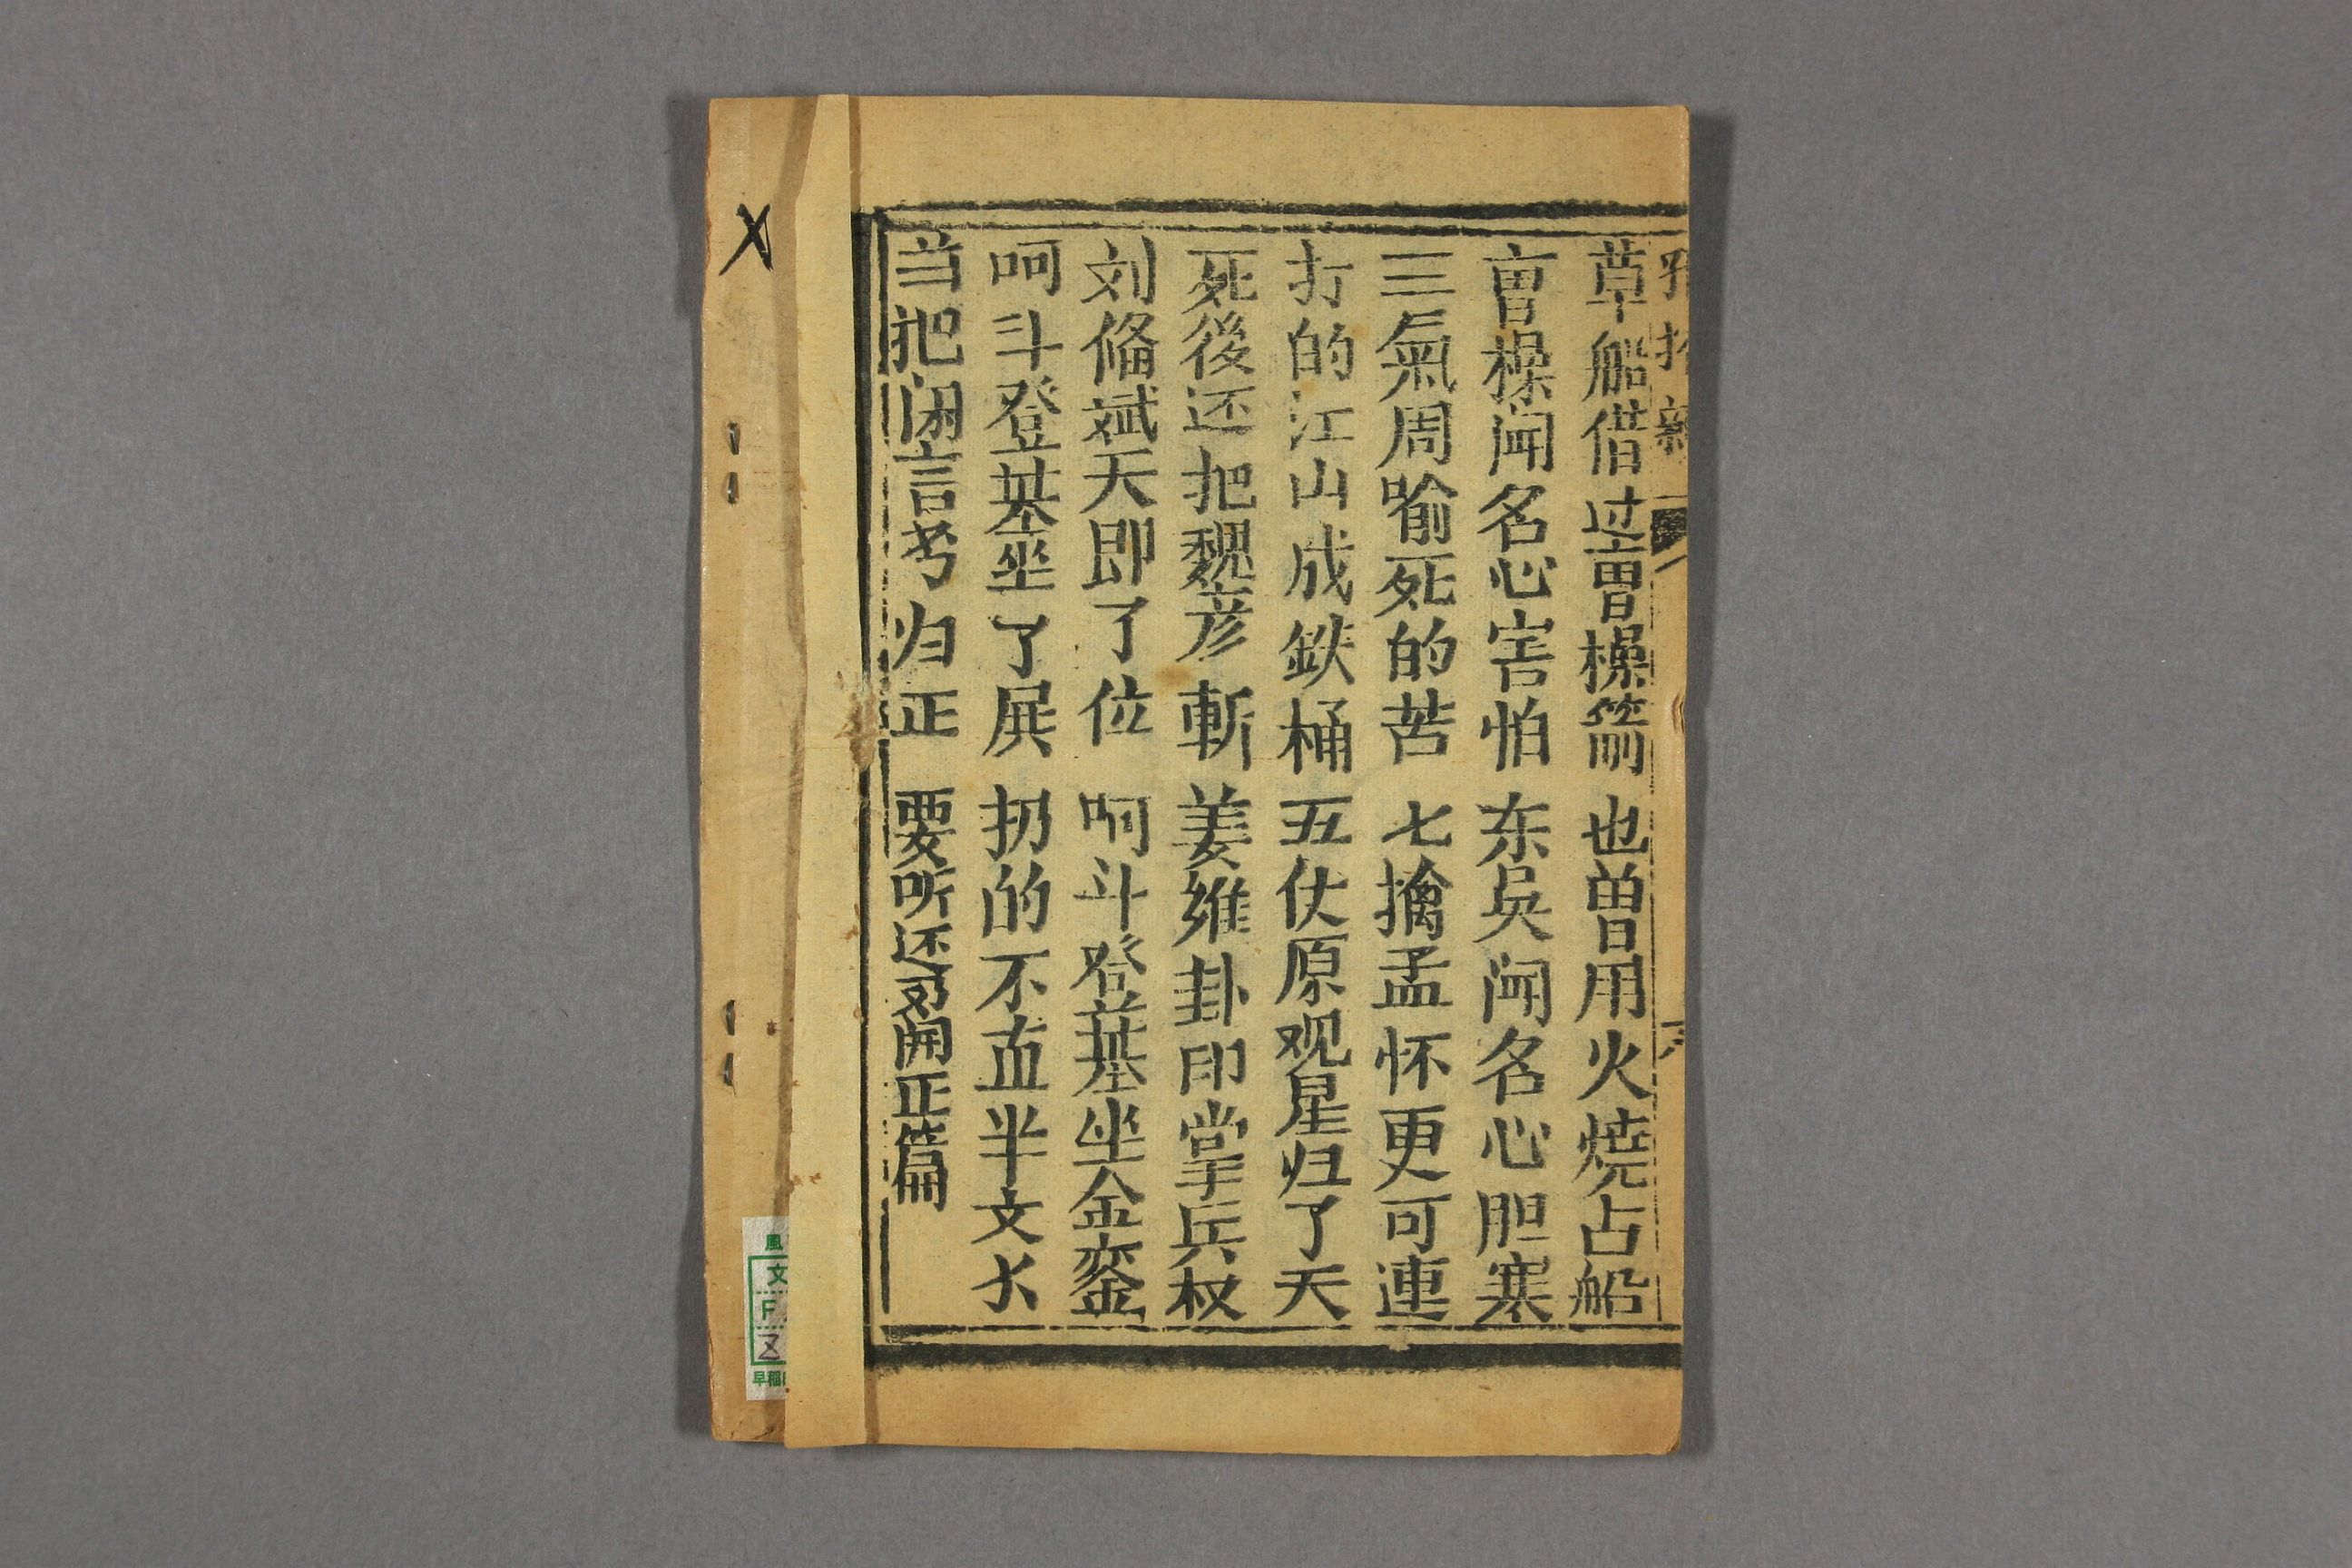 草船借过曹操箭 也曾用火燒占船
曹操闻名心害怕 东吴闻名心胆寒
三氣周喻死的苦 七擒孟怀更可連
打的江山成鉄桶 五仗原观星归了天
死後还把魏彦斬 姜维卦印掌兵权
刘俻斌天即了位 呵斗登基坐金銮
呵斗登基坐了展 扔的不直半文大
当把闲言考归正 要听还刄開正篇
六
X
風
文
F
Z
早稲